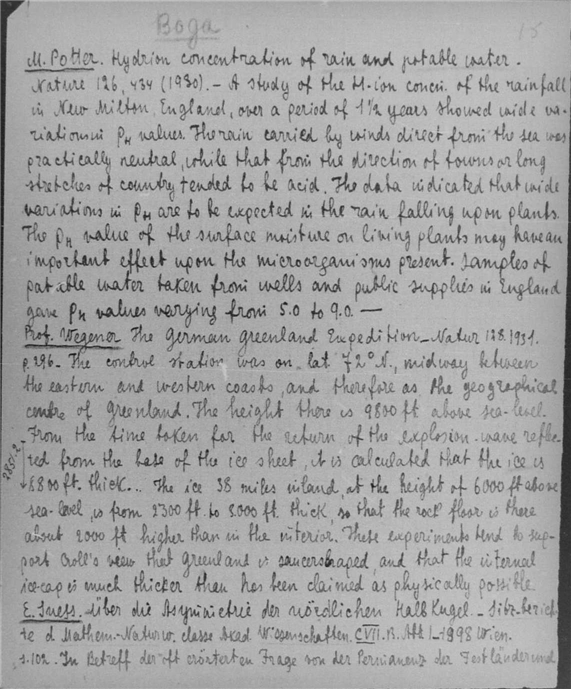 Boga
15
M. Potter. Hydrion concentration of rain and potable water.
Nature 126, 434 (1930). – A study of the H-ion concn. of the rainfall
in New Milton, England, over a period of 1½ years showed wide va-
riations in pH values. The rain carried by winds direct from the sea was
practically neutral, while that from the direction of towns or long
stretches of country tended to be acid. The data indicated that wide
variations in pH are to be expected in the rain falling upon plants.
The pH value of the surface moisture on living plants may have an
important effect upon the microorganisms present. Samples of
potable water taken from wells and public supplies in England
gave pH values varying from 5.0 to 9.0. —
Prof. Wegener The German Greenland Expedition – Natur 128. 1931.
p. 296. – The control station was on lat 72° N., midway between
the eastern and western coasts, and therefore as the geographical
centre of Greenland. The height there is 9800 ft above sea-level.
From the time taken for the return of the explosion-wave reflec-
red from the base of the ice sheet, it is calculated that the ice is
8800 ft. thick... The ice 38 miles inland, at the height of 6000 ft above
sea-level, is from 2300 ft to 8000 ft. thick, so that the rock floor is there
about 2000 ft higher than in the interior. These experiments tend to sup-
port Croll's view that Greenland is saucershaped, and that the internal
ice-cap is much thicker than has been claimed as physically possible
E. Suess. Über die Asymmetrie der nördlichen Halbkugel. – Sitz-berich-
te d Mathem-Naturw. classe Akad Wissenschaften. CVII. B. Abt I – 1998 Wien.
s. 102. In Betreff der oft erörterten Frage von der Permanenz der Festländer und